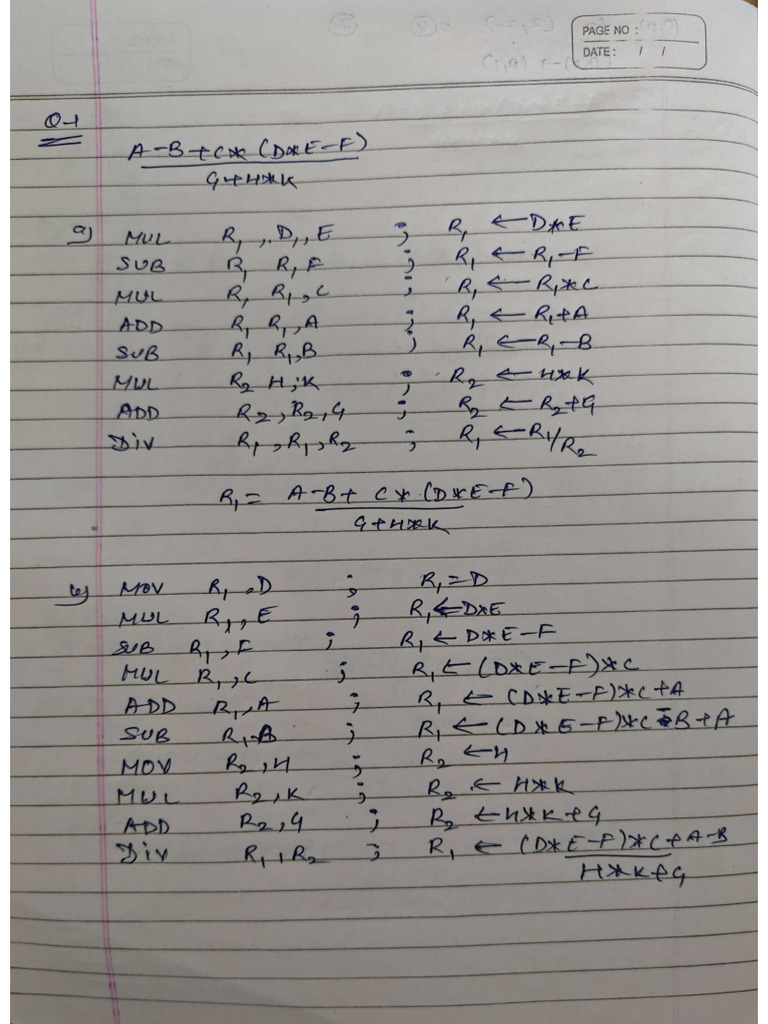 PAGE NO :
DATE : / /
Q-1
A-B+C* (D*E-F)
G+H*K
a) MUL R1, D, E ; R1 ← D*E
SUB R1 R1, F ; R1 ← R1-F
MUL R1 R1, C ; R1 ← R1*C
ADD R1 R1, A ; R1 ← R1+A
SUB R1 R1, B ; R1 ← R1-B
MUL R2 H, K ; R2 ← H*K
ADD R2, R2, G ; R2 ← R2+G
Div R1, R1, R2 ; R1 ← R1/R2
R1 = A-B+ C* (D*E-F)
G+H*K
b) MOV R1, D ; R1 = D
MUL R1, E ; R1 ← D*E
SUB R1, F ; R1 ← D*E-F
MUL R1, C ; R1 ← (D*E-F)*C
ADD R1, A ; R1 ← (D*E-F)*C+A
SUB R1, B ; R1 ← (D*E-F)*C-B+A
MOV R2, H ; R2 ← H
MUL R2, K ; R2 ← H*K
ADD R2, G ; R2 ← H*K+G
Div R1, R2 ; R1 ← (D*E-F)*C+A-B
H*K+G